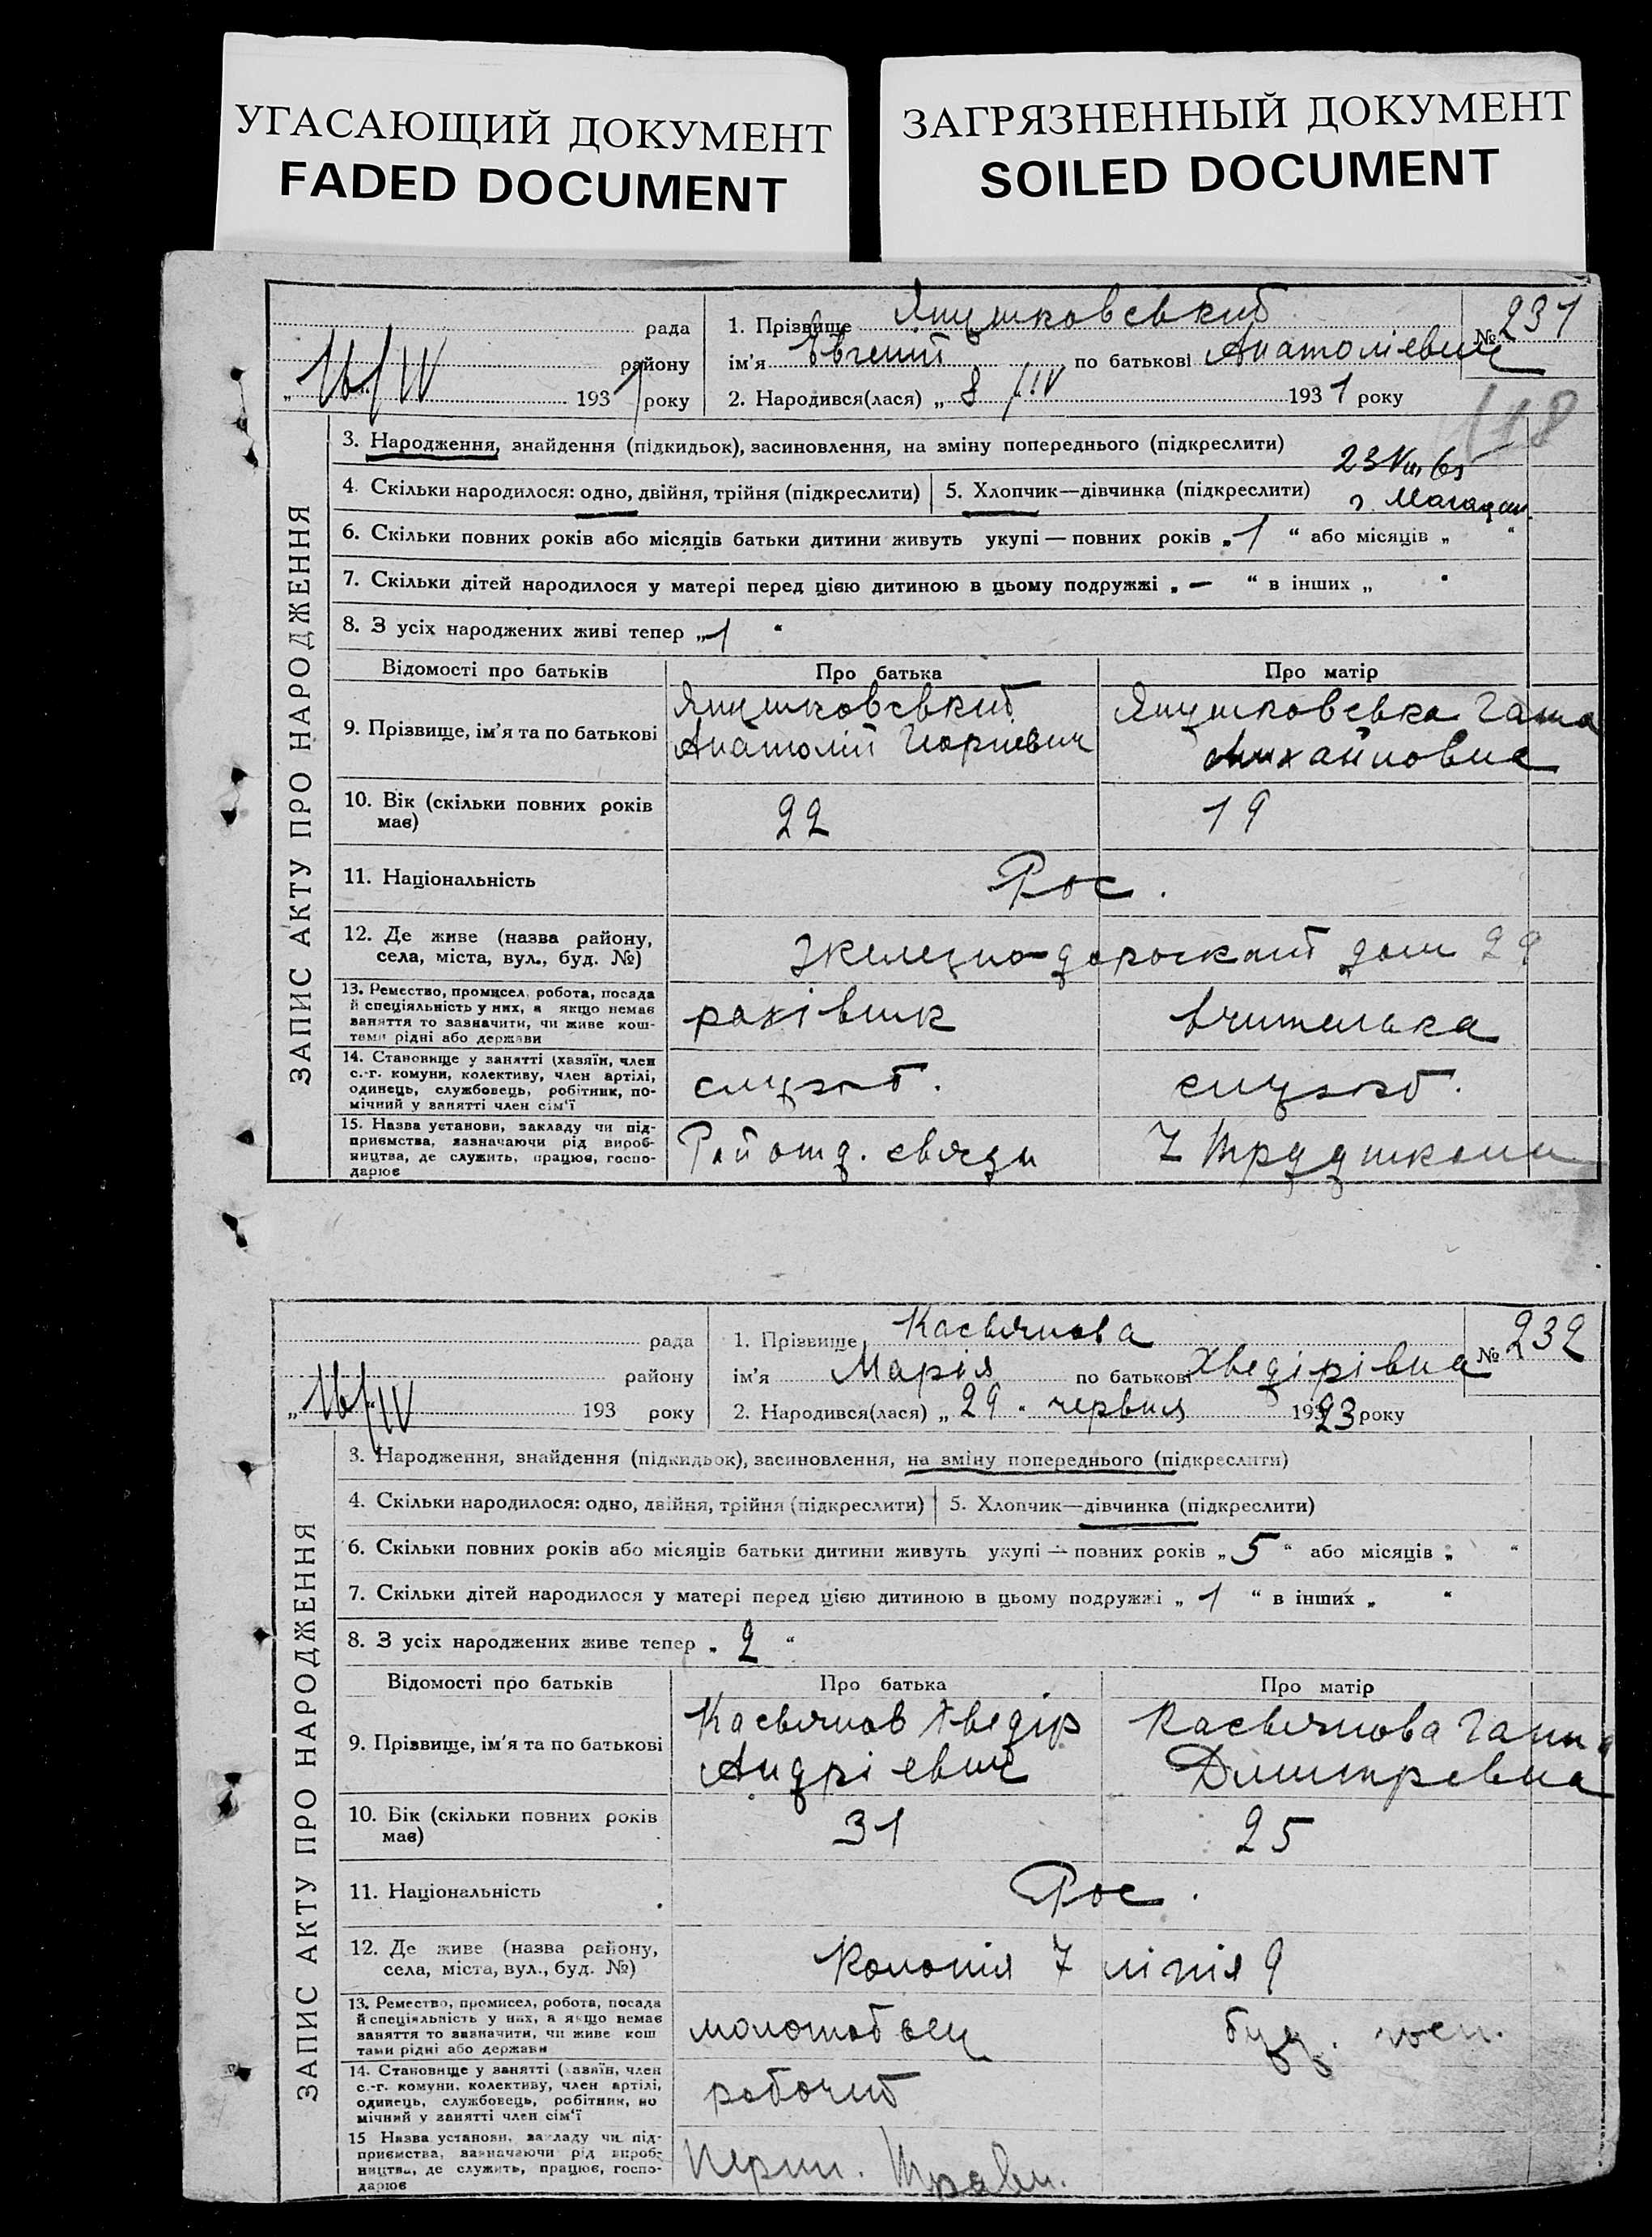 УГАСАЮЩИЙ ДОКУМЕНТ
FADED DOCUMENT
ЗАГРЯЗНЕННЫЙ ДОКУМЕНТ
SOILED DOCUMENT
ЗАПИС АКТУ ПРО НАРОДЖЕННЯ
рада
району
„16/IV 1931 року
№ 231
1. Прізвище Янушковський
ім'я Євгеній по батькові Анатолієвич
2. Народився(лася) „8/IV 1931 року
118
3. Народження, знайдення (підкидьок), засиновлення, на зміну попереднього (підкреслити)
23 VIII 61
г. Магадан.
4. Скільки народилося: одно, двійня, трійня (підкреслити) 5. Хлопчик—дівчинка (підкреслити)
6. Скільки повних років або місяців батьки дитини живуть укупі — повних років „1“ або місяців „ “
7. Скільки дітей народилося у матері перед цією дитиною в цьому подружжі „—“ в інших „ “
8. З усіх народжених живі тепер „1“
Відомості про батьків Про батька Про матір
9. Прізвище, ім'я та по батькові
Янушковський
Анатолій
Янушковська Гана
Михайловна
10. Вік (скільки повних років має) 22 19
11. Національність Рос.
12. Де живе (назва району, села, міста, вул., буд. №) Железно-дорожний дом 29
13. Ремество, промисел, робота, посада
й спеціяльність у них, а якщо немає
заняття то зазначити, чи живе кош-
тами рідні або держави
рахівник вчителька
14. Становище у занятті (хазяїн, член
с.-г. комуни, колективу, член артілі,
одинець, службовець, робітник, по-
мічний у занятті член сім'ї
служб. служб.
15. Назва установи, закладу чи під-
приємства, зазначаючи рід вироб-
ництва, де служить, працює, госпо-
дарює
Райотд. связи 7 Трудшкола
ЗАПИС АКТУ ПРО НАРОДЖЕННЯ
рада
району
„16/IV 193 року
№ 232
1. Прізвище Касьянова
ім'я Марія по батькові Хведірівна
2. Народився(лася) „29. червня 1923 року
3. Народження, знайдення (підкидьок), засиновлення, на зміну попереднього (підкреслити)
4. Скільки народилося: одно, двійня, трійня (підкреслити) 5. Хлопчик—дівчинка (підкреслити)
6. Скільки повних років або місяців батьки дитини живуть укупі — повних років „5“ або місяців „ “
7. Скільки дітей народилося у матері перед цією дитиною в цьому подружжі „1“ в інших „ “
8. З усіх народжених живе тепер „2“
Відомості про батьків Про батька Про матір
9. Прізвище, ім'я та по батькові
Касьянов Хведір
Андрієвич
Касьянова Ганна
Димитревна
10. Вік (скільки повних років має) 31 25
11. Національність Рос.
12. Де живе (назва району, села, міста, вул., буд. №) Колонія 7 лінія 9
13. Ремество, промисел, робота, посада
й спеціяльність у них, а якщо немає
заняття то зазначити, чи живе кош
тами рідні або держави
молотобоец
14. Становище у занятті (хазяїн, член
с.-г. комуни, колективу, член артілі,
одинець, службовець, робітник, по
мічний у занятті член сім'ї
рабочий
15 Назва установи, закладу чи під-
приємства, зазначаючи рід вироб-
ництва, де служить, працює, госпо-
дарює
Перш. Травн.